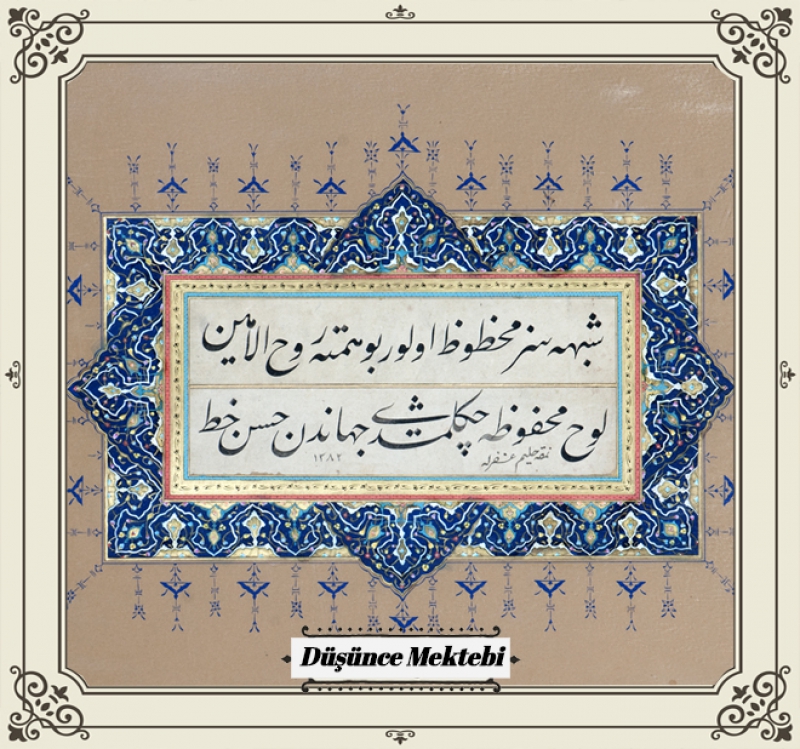 شبهه سز محظوظ اولور بو همتنه روح الامین
لوح محفوظه چكلمشدی جهاندن حسن خط
نمقه حلیم غفرله
١٣٨٢
Düşünce Mektebi